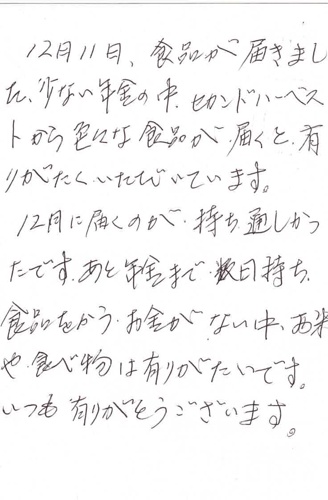 12月11日、食品が届きまし
た、少ない年金の中、セカンドハーベス
トから色々な食品が、届くと、有
りがたくいただいています。
12月に届くのが、持ち通しかっ
たです。あと年金まで数日持ち、
食品をかう、お金がない中、お米
や食べ物は有りがたいです。
いつも有りがとうございます。